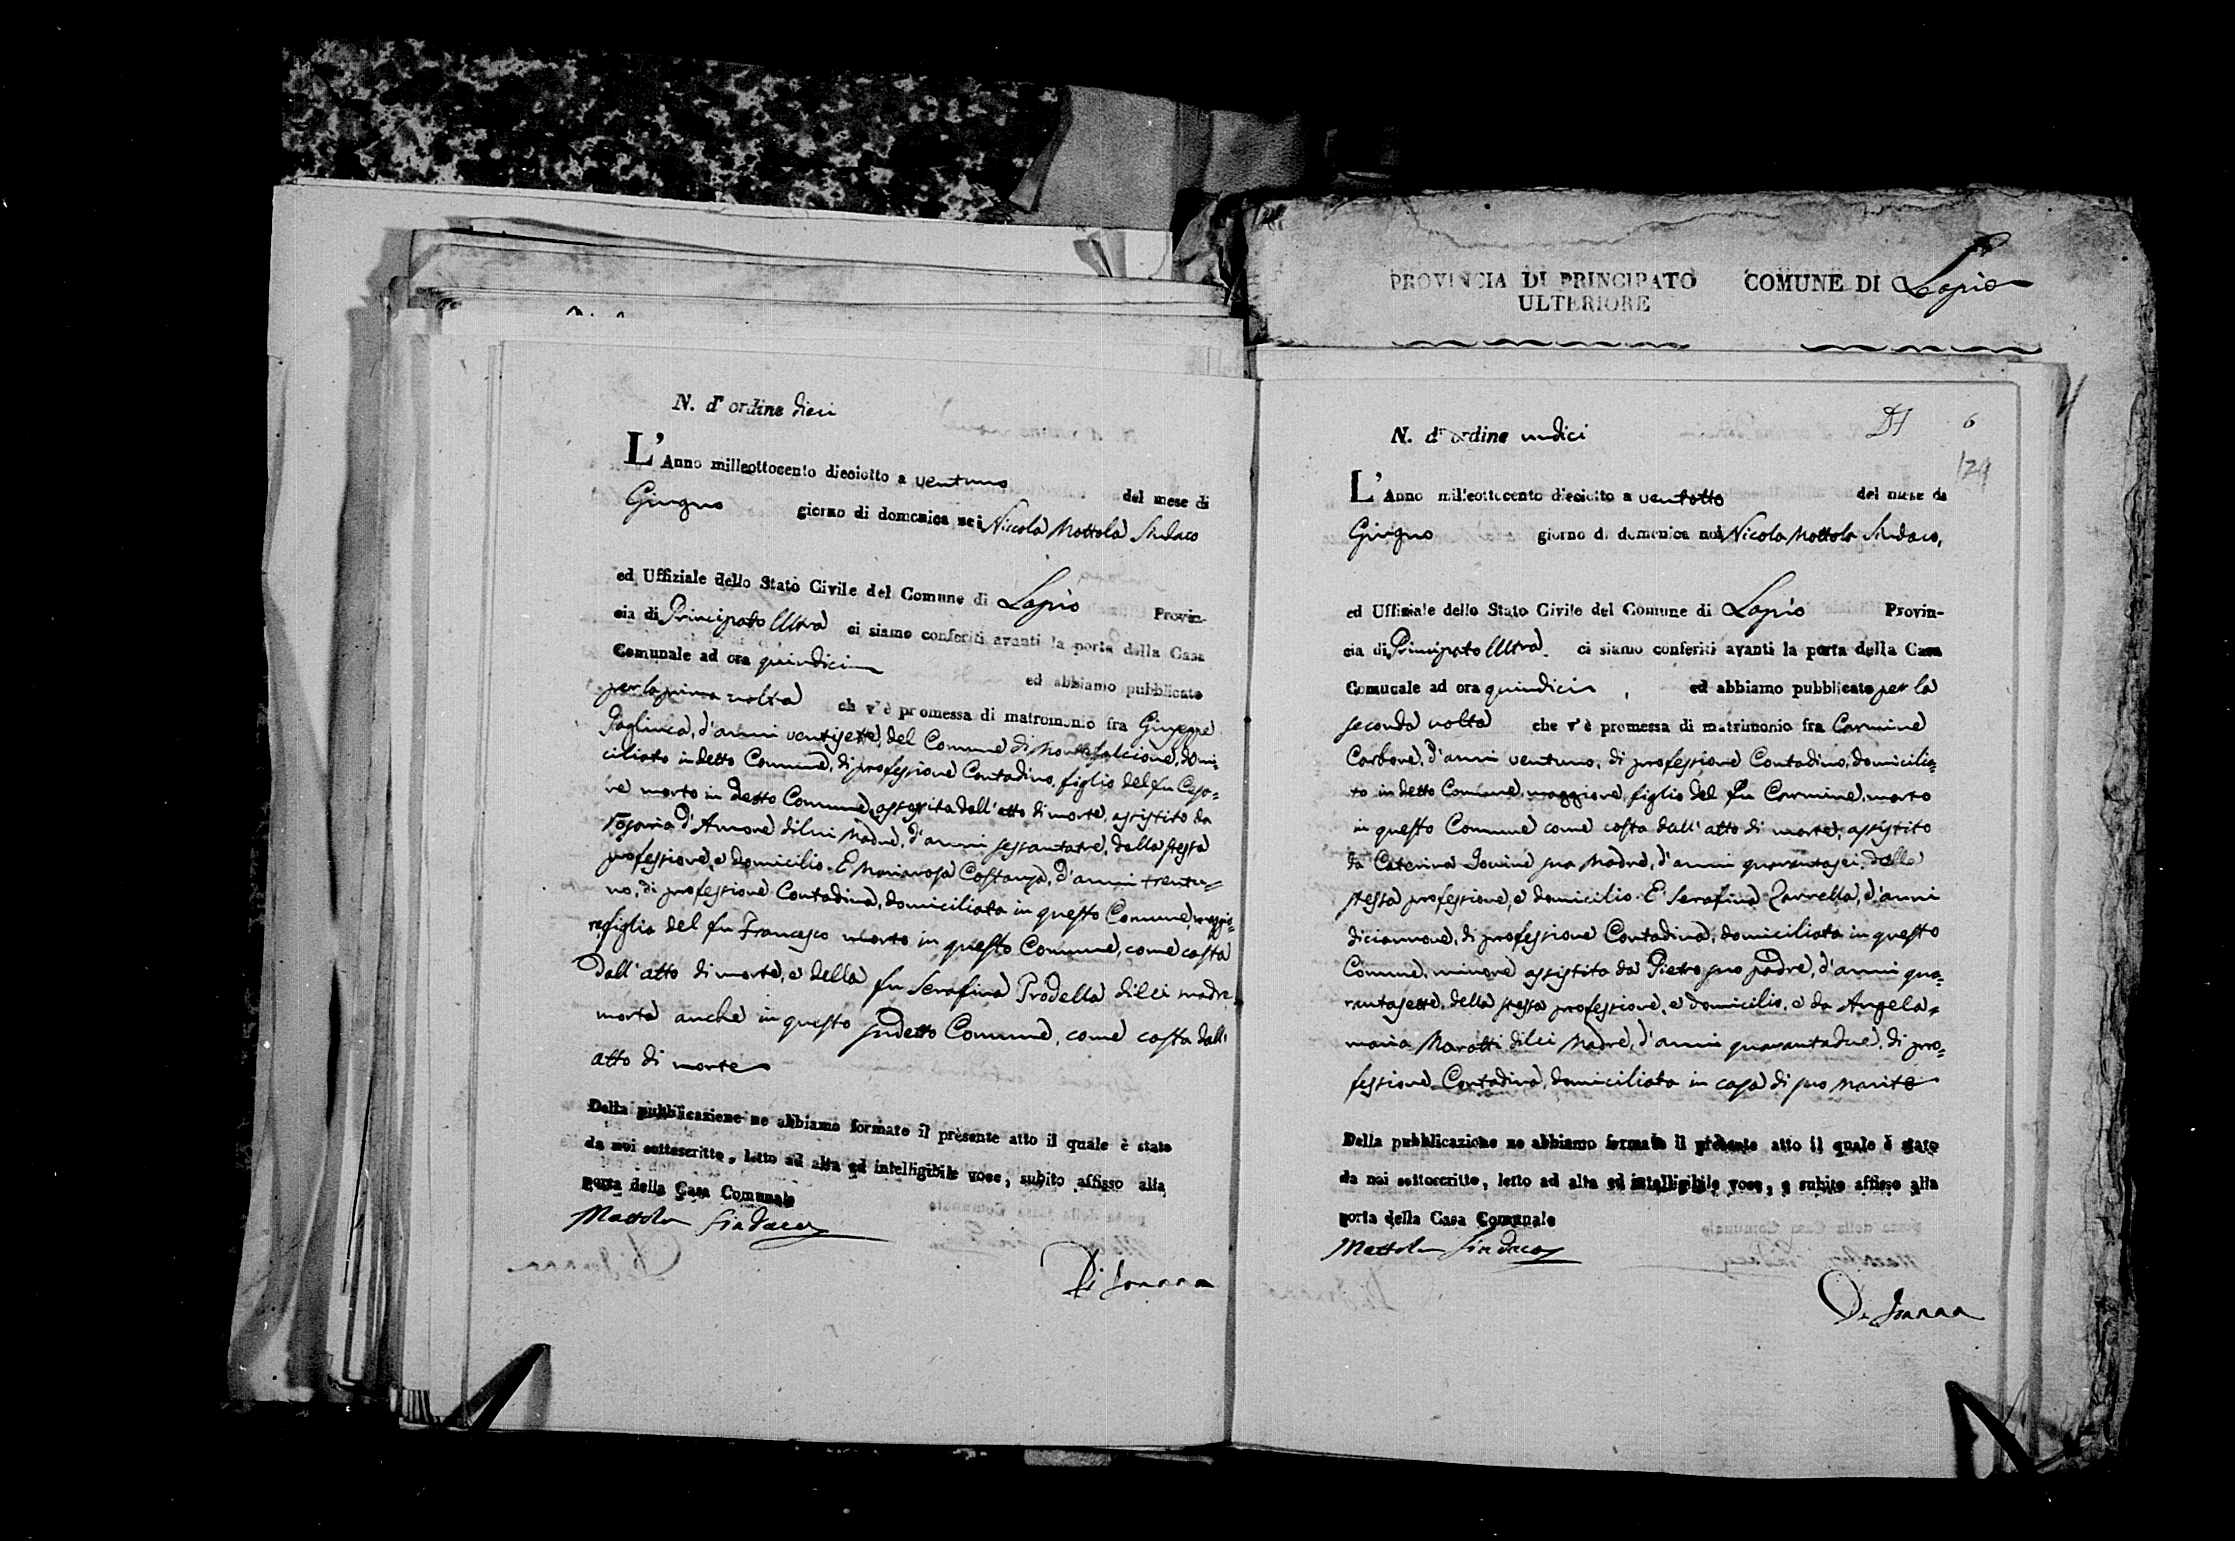 N. d'ordine dieci
L'Anno milleottocento dieciotto a ventuno del mese di
Giugno giorno di domenica noi Niccola Mottola Sindaco
ed Uffiziale dello Stato Civile del Comune di Lapio Provin-
cia di Principato Ultra ci siamo conferiti avanti la porta della Casa
Comunale ad ora quindici ed abbiamo pubblicato
per la prima volta ch v'è promessa di matromonio fra Giuseppe
d'anni ventisette, del Comune di Montefalcione, domi-
ciliato in detto Comune, di professione Contadino, figlio del fu Cesa=
re morto in detto Comune, dall'atto di morte, assistito da
Rosaria d'Amore di lui Madre, d'anni sessantatre, della stessa
professione, e domicilio. E Mariarosa Costanza, d'anni trentu=
no, di professione Contadina, domiciliata in questo Comune, maggio=
re, figlia del fu Francesco morto in questo Comune, come costa
dall'atto di morte, e della fu Serafina Prodella di lei madre
morta anche in questo sudetto Comune, come costa dall'
atto di morte
Della pubblicazione ne abbiamo formato il presente atto il quale è stato
da noi sottoscritto, letto ad alta ed intelligibile voce, subito affisso alla
porta della Casa Comunale
Mottola Sindaco
PROVINCIA DI PRINCIPATO
ULTERIORE
COMUNE DI Lapio
6
N. d'ordine undici
L'Anno milleottocento dieciotto a ventotto del mese di
Giugno giorno di domenica noi Nicola Mottola Sindaco,
ed Uffiziale dello Stato Civile del Comune di Lapio Provin-
cia di Principato Ultra. ci siamo conferiti avanti la porta della Casa
Comunale ad ora quindici, ed abbiamo pubblicato per la
seconda volta che v'è promessa di matrimonio fra Carmine
Carbone, d'anni ventuno, di professione Contadino, domicilia=
to in detto Comune, maggiore, figlio del fu Carmine, morto
in questo Comune come costa dall'atto di morte, assistito
da Caterina Iovine sua Madre, d'anni quarantasei, della
stessa professione, e domicilio. E Serafina Zarrella, d'anni
diciannove, di professione Contadina, domiciliata in questo
Comune, minore assistita da Pietro suo padre, d'anni qua=
rantasette, della stessa professione, e domicilio, e da Angela=
maria Marotti di lei Madre, d'anni quarantadue, di pro=
fessione Contadina, domiciliata in casa di suo Marito
Della pubblicazione ne abbiamo formato il presente atto il quale è stato
da noi sottoscritto, letto ad alta ed intelligibile voce, e subito affisso alla
porta della Casa Comunale
Mottola Sindaco